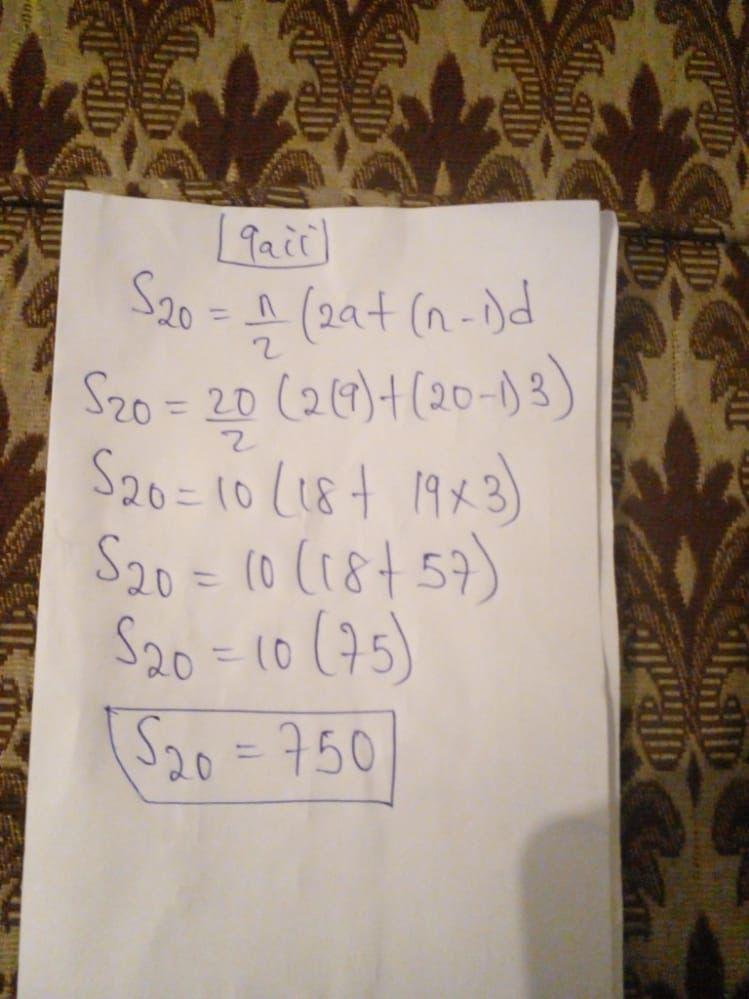 9aii
S20 = n/2 (2a + (n-1)d
S20 = 20/2 (2(9) + (20-1)3)
S20 = 10 (18 + 19×3)
S20 = 10 (18 + 57)
S20 = 10 (75)
S20 = 750